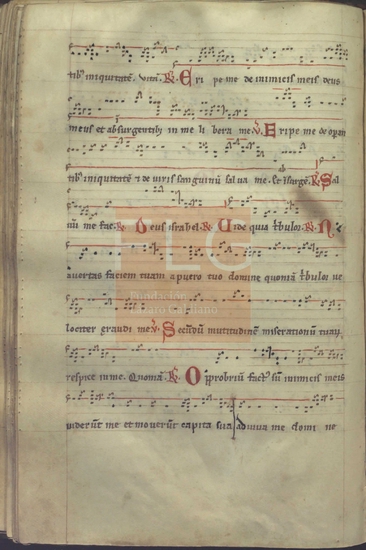 tib' iniquitatē. Vitā. R. Eri pe me de inimicis meis deus
meus et absurgentib; in me li bera me. V. Eripe me de operan
tib' iniquitatē & de viris sanguinū sal va me. Et Isurgē. R. Sal
uū me fac. R. Deus israhel. R. Uide quia tribulor. R. N
avertas faciem tuam a puero tuo domine quoniā tribulor ve
lociter exaudi me. V. Secūdū multitudinē miserationū tuarū
respice in me. Quoniā. R. Opprobriū fact' sū inimicis meis
viderūt me et moverūt capita sua adiuva me domi ne
Fundación
Lázaro Galdiano